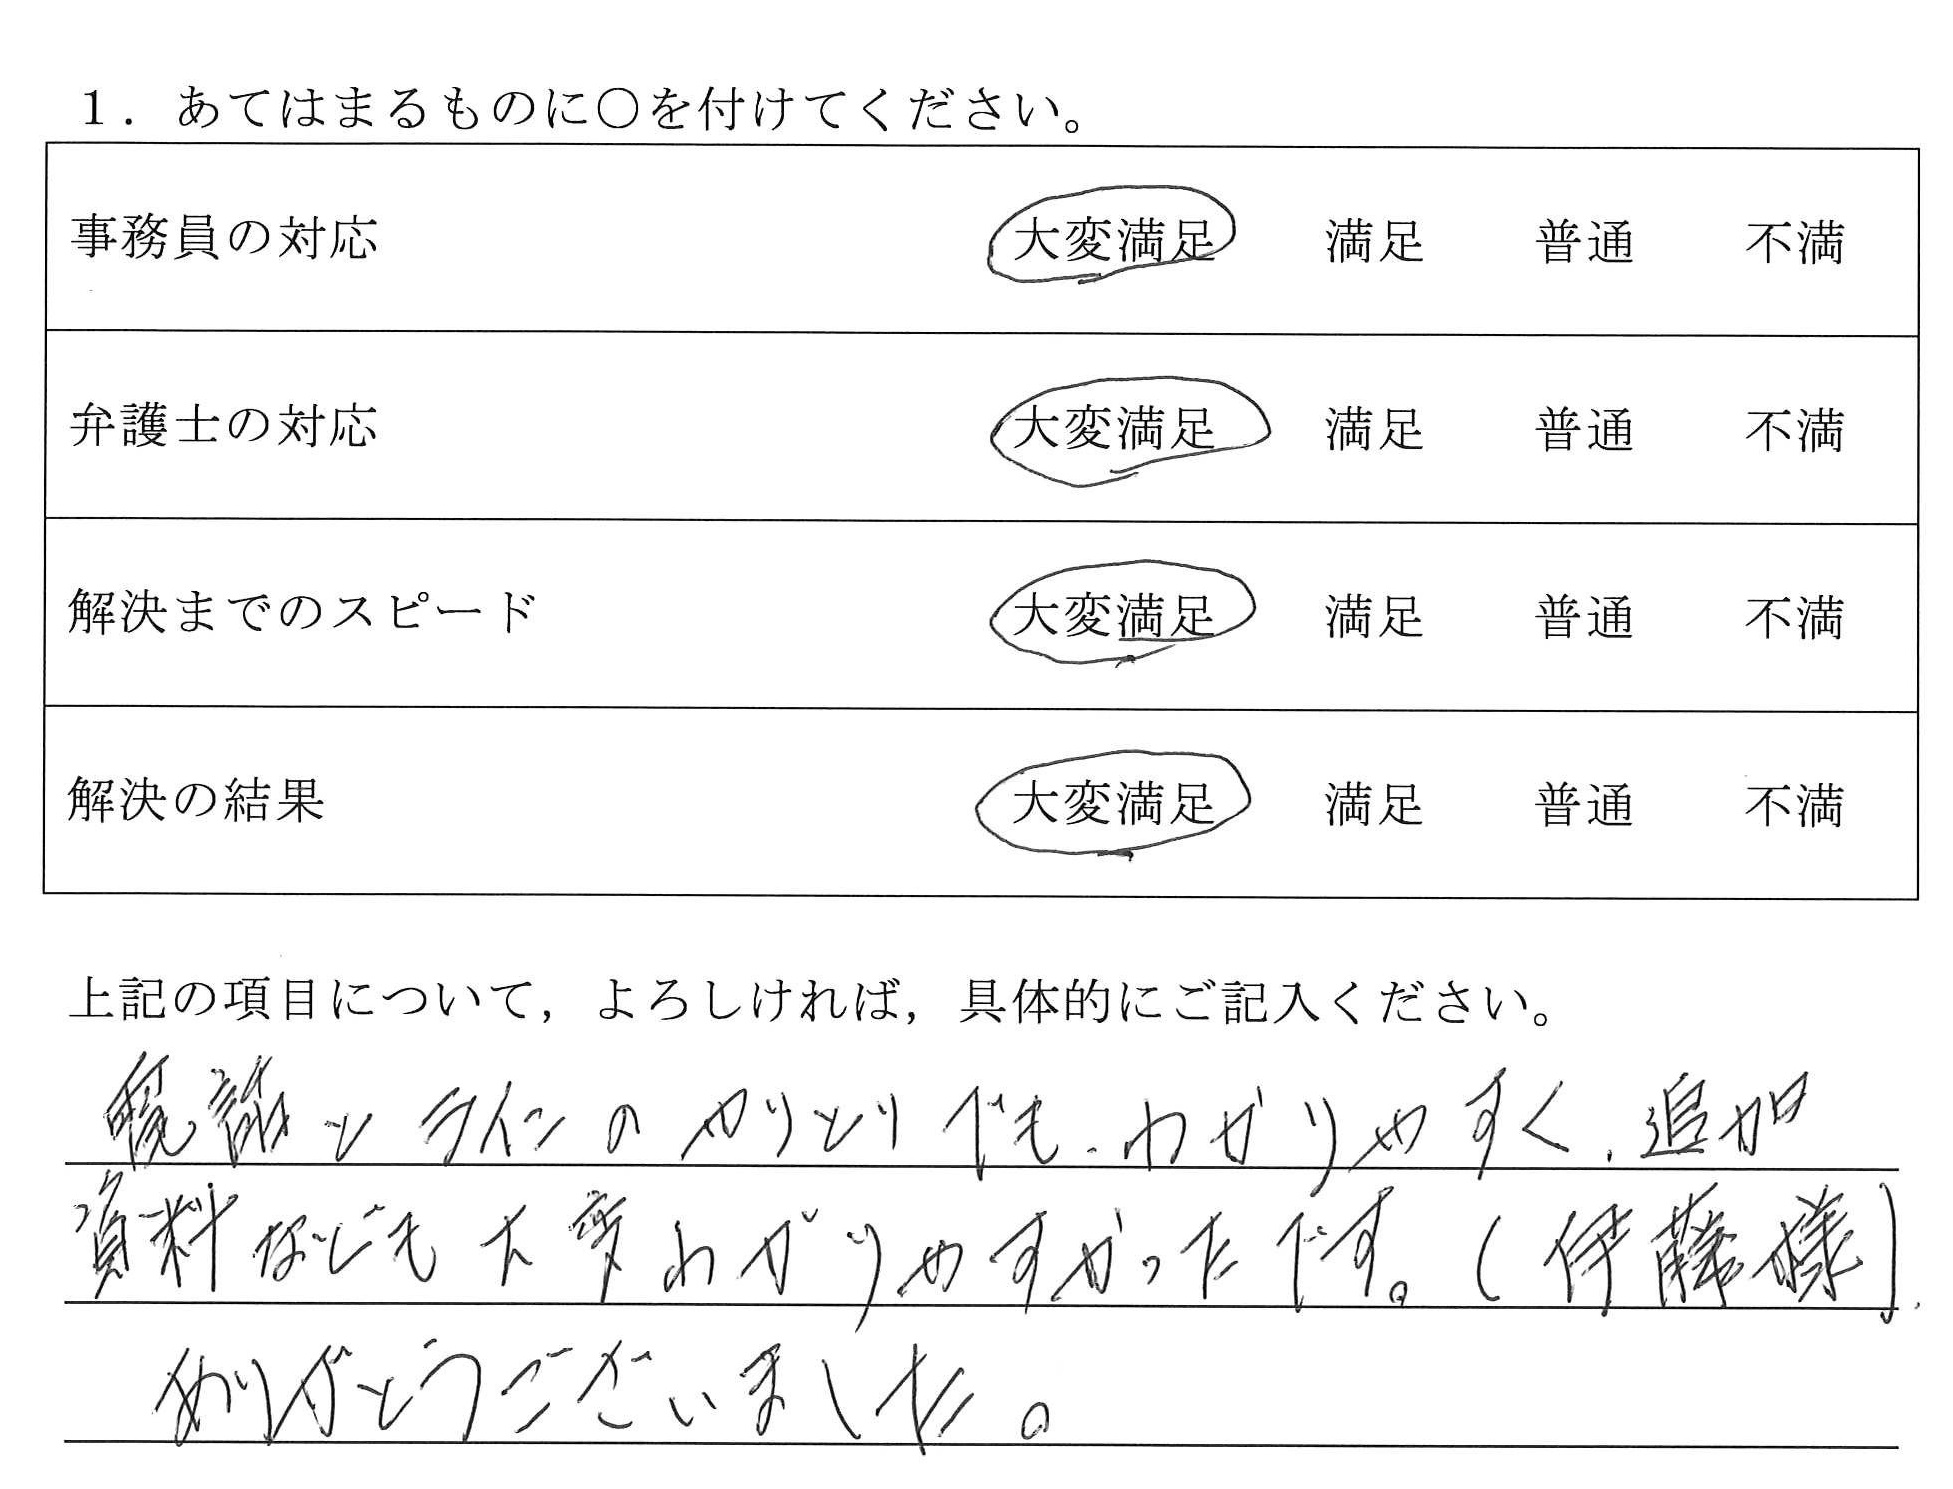 1．あてはまるものに○を付けてください。
事務員の対応 大変満足 満足 普通 不満
弁護士の対応 大変満足 満足 普通 不満
解決までのスピード 大変満足 満足 普通 不満
解決の結果 大変満足 満足 普通 不満
上記の項目について，よろしければ，具体的にご記入ください。
電話とラインのやりとりでも、わかりやすく、追加
資料なども大変わかりやすかったです。(伊藤様)
ありがとうございました。